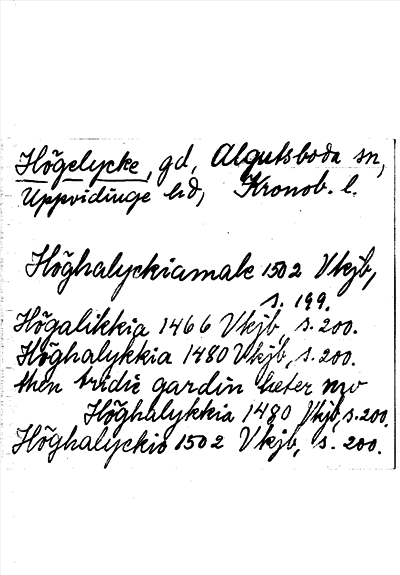 Högelycke, gd, Algutsboda sn,
Uppvidinge hd, Kronob. l.
Höghalyckiamale 1502 Vkjb,
s. 199.
Högalikkia 1466 Vkjb, s. 200.
Höghalykkia 1480 Vkjb, s. 200.
then tridie gardin heter nw
Höghalykkia 1480 Vkjb, s. 200.
Höghalyckio 1502 Vkjb, s. 200.